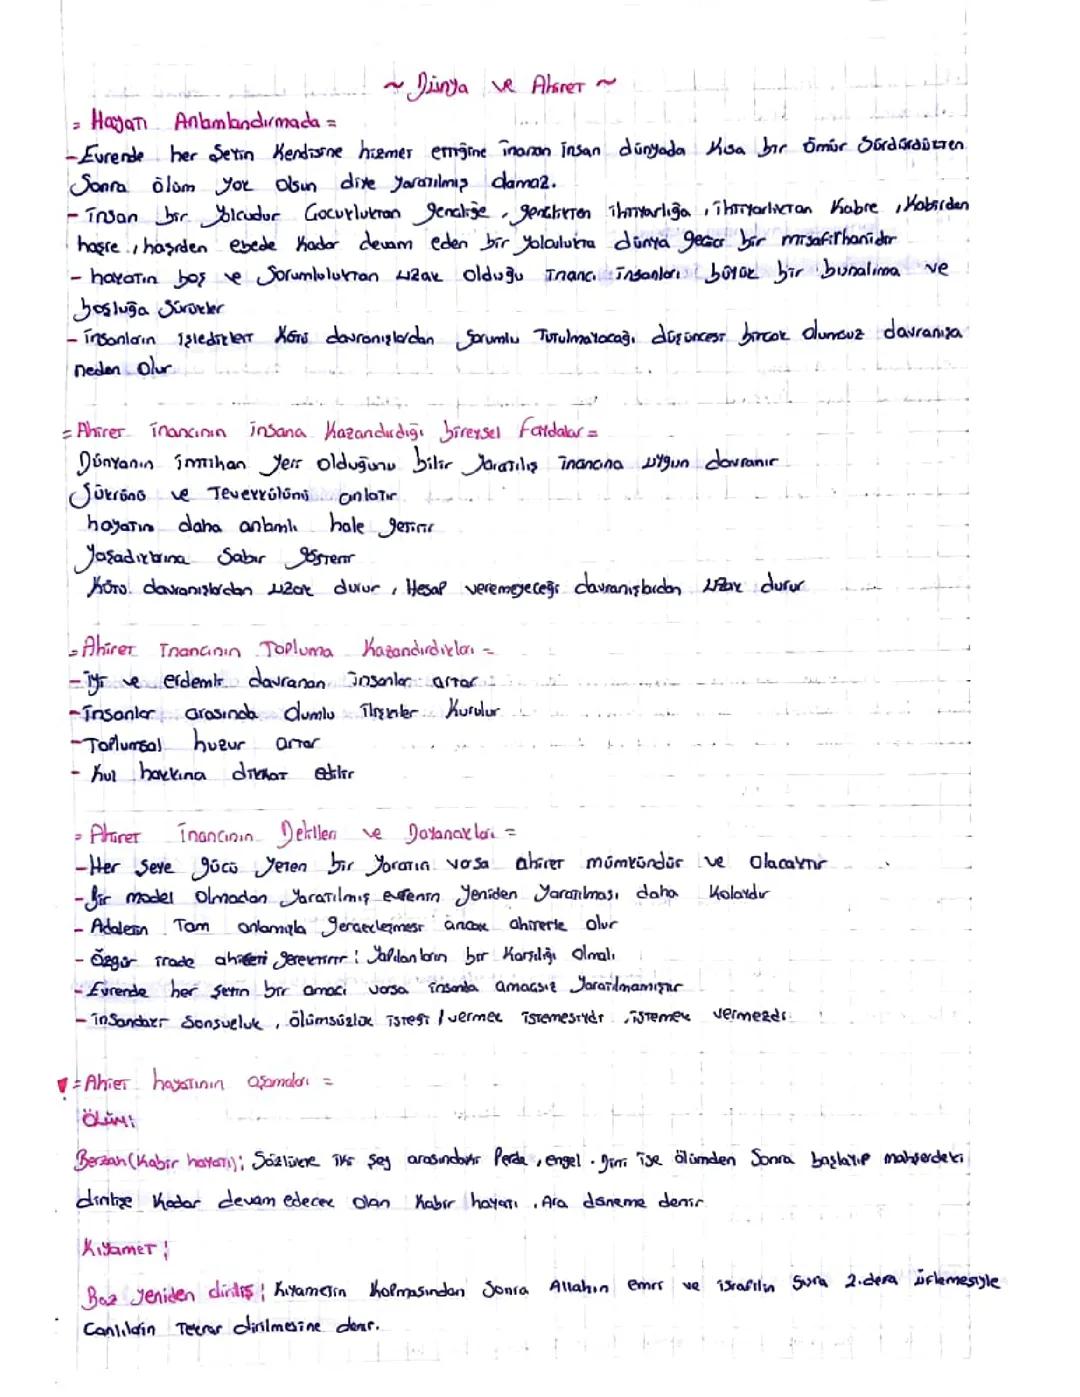 ~ Dünya ve Ahiret ~
= Hayatı Anlamlandırmada =
- Evrende her şeyin kendisine hizmet ettiğine inanan insan dünyada kısa bir ömür sürdürdükten
Sonra ölüm yok olsun diye yaratılmış olamaz.
- insan bir yolcudur Çocukluktan gençliğe, gençlikten ihtiyarlığa, ihtiyarlıktan kabre, kabirden
haşre, haşrden ebede kadar devam eden bir yolculukta dünya geçici bir misafirhanidir
- hayatın boş ve Sorumluluktan uzak olduğu inancı insanları büyük bir bunalıma ve
boşluğa Sürükler
- insanların işledikleri kötü davranışlardan sorumlu Tutulmayacağı düşüncesi birçok olumsuz davranışa
neden olur
= Ahiret inancının insana kazandırdığı bireysel Faydalar =
Dünyanın imtihan yeri olduğunu bilir yaratılış inancına uygun davranır
Şükrünü ve Tevekkülünü anlatır
hayatını daha anlamlı hale getirir
yaşadıklarına Sabır gösterir
Kötü davranışlardan uzak durur, Hesap veremeyeceği davranışlardan uzak durur
= Ahiret İnancının Topluma Kazandırdıkları =
- iyi ve erdemli davranan insanlar artar
- İnsanlar arasında olumlu ilişkiler kurulur
- Toplumsal huzur artar
- kul hakkına dikkat edilir
= Ahiret inancının Delilleri ve Dayanakları =
- Her şeye gücü yeten bir yaratıcı varsa ahiret mümkündür ve olacaktır
- Bir model olmadan yaratılmış evrenin yeniden yaratılması daha kolaydır
- Adaletin Tam anlamıyla gerçekleşmesi ancak ahirette olur
- Özgür irade ahireti gerektirir: Yapılanların bir karşılığı olmalı
- Evrende her şeyin bir amacı varsa insanda amaçsız yaratılmamıştır
- insandaki Sonsuzluk, ölümsüzlük isteği / vermek istemeseydi, istemek vermezdi.
= Ahiet hayatının aşamaları =
ÖLÜM:
Berzah (Kabir hayatı); Sözlükte iki şey arasındaki Perde, engel. Dini ise ölümden Sonra başlayıp mahşerdeki
dirilişe kadar devam edecek olan kabir hayatı. Ara döneme denir
Kıyamet;
Baz yeniden diriliş; Kıyametin kopmasından Sonra Allahın emri ve israfilin Sura 2.defa üflemesiyle
Canlıların Tekrar dirilmesine denir.